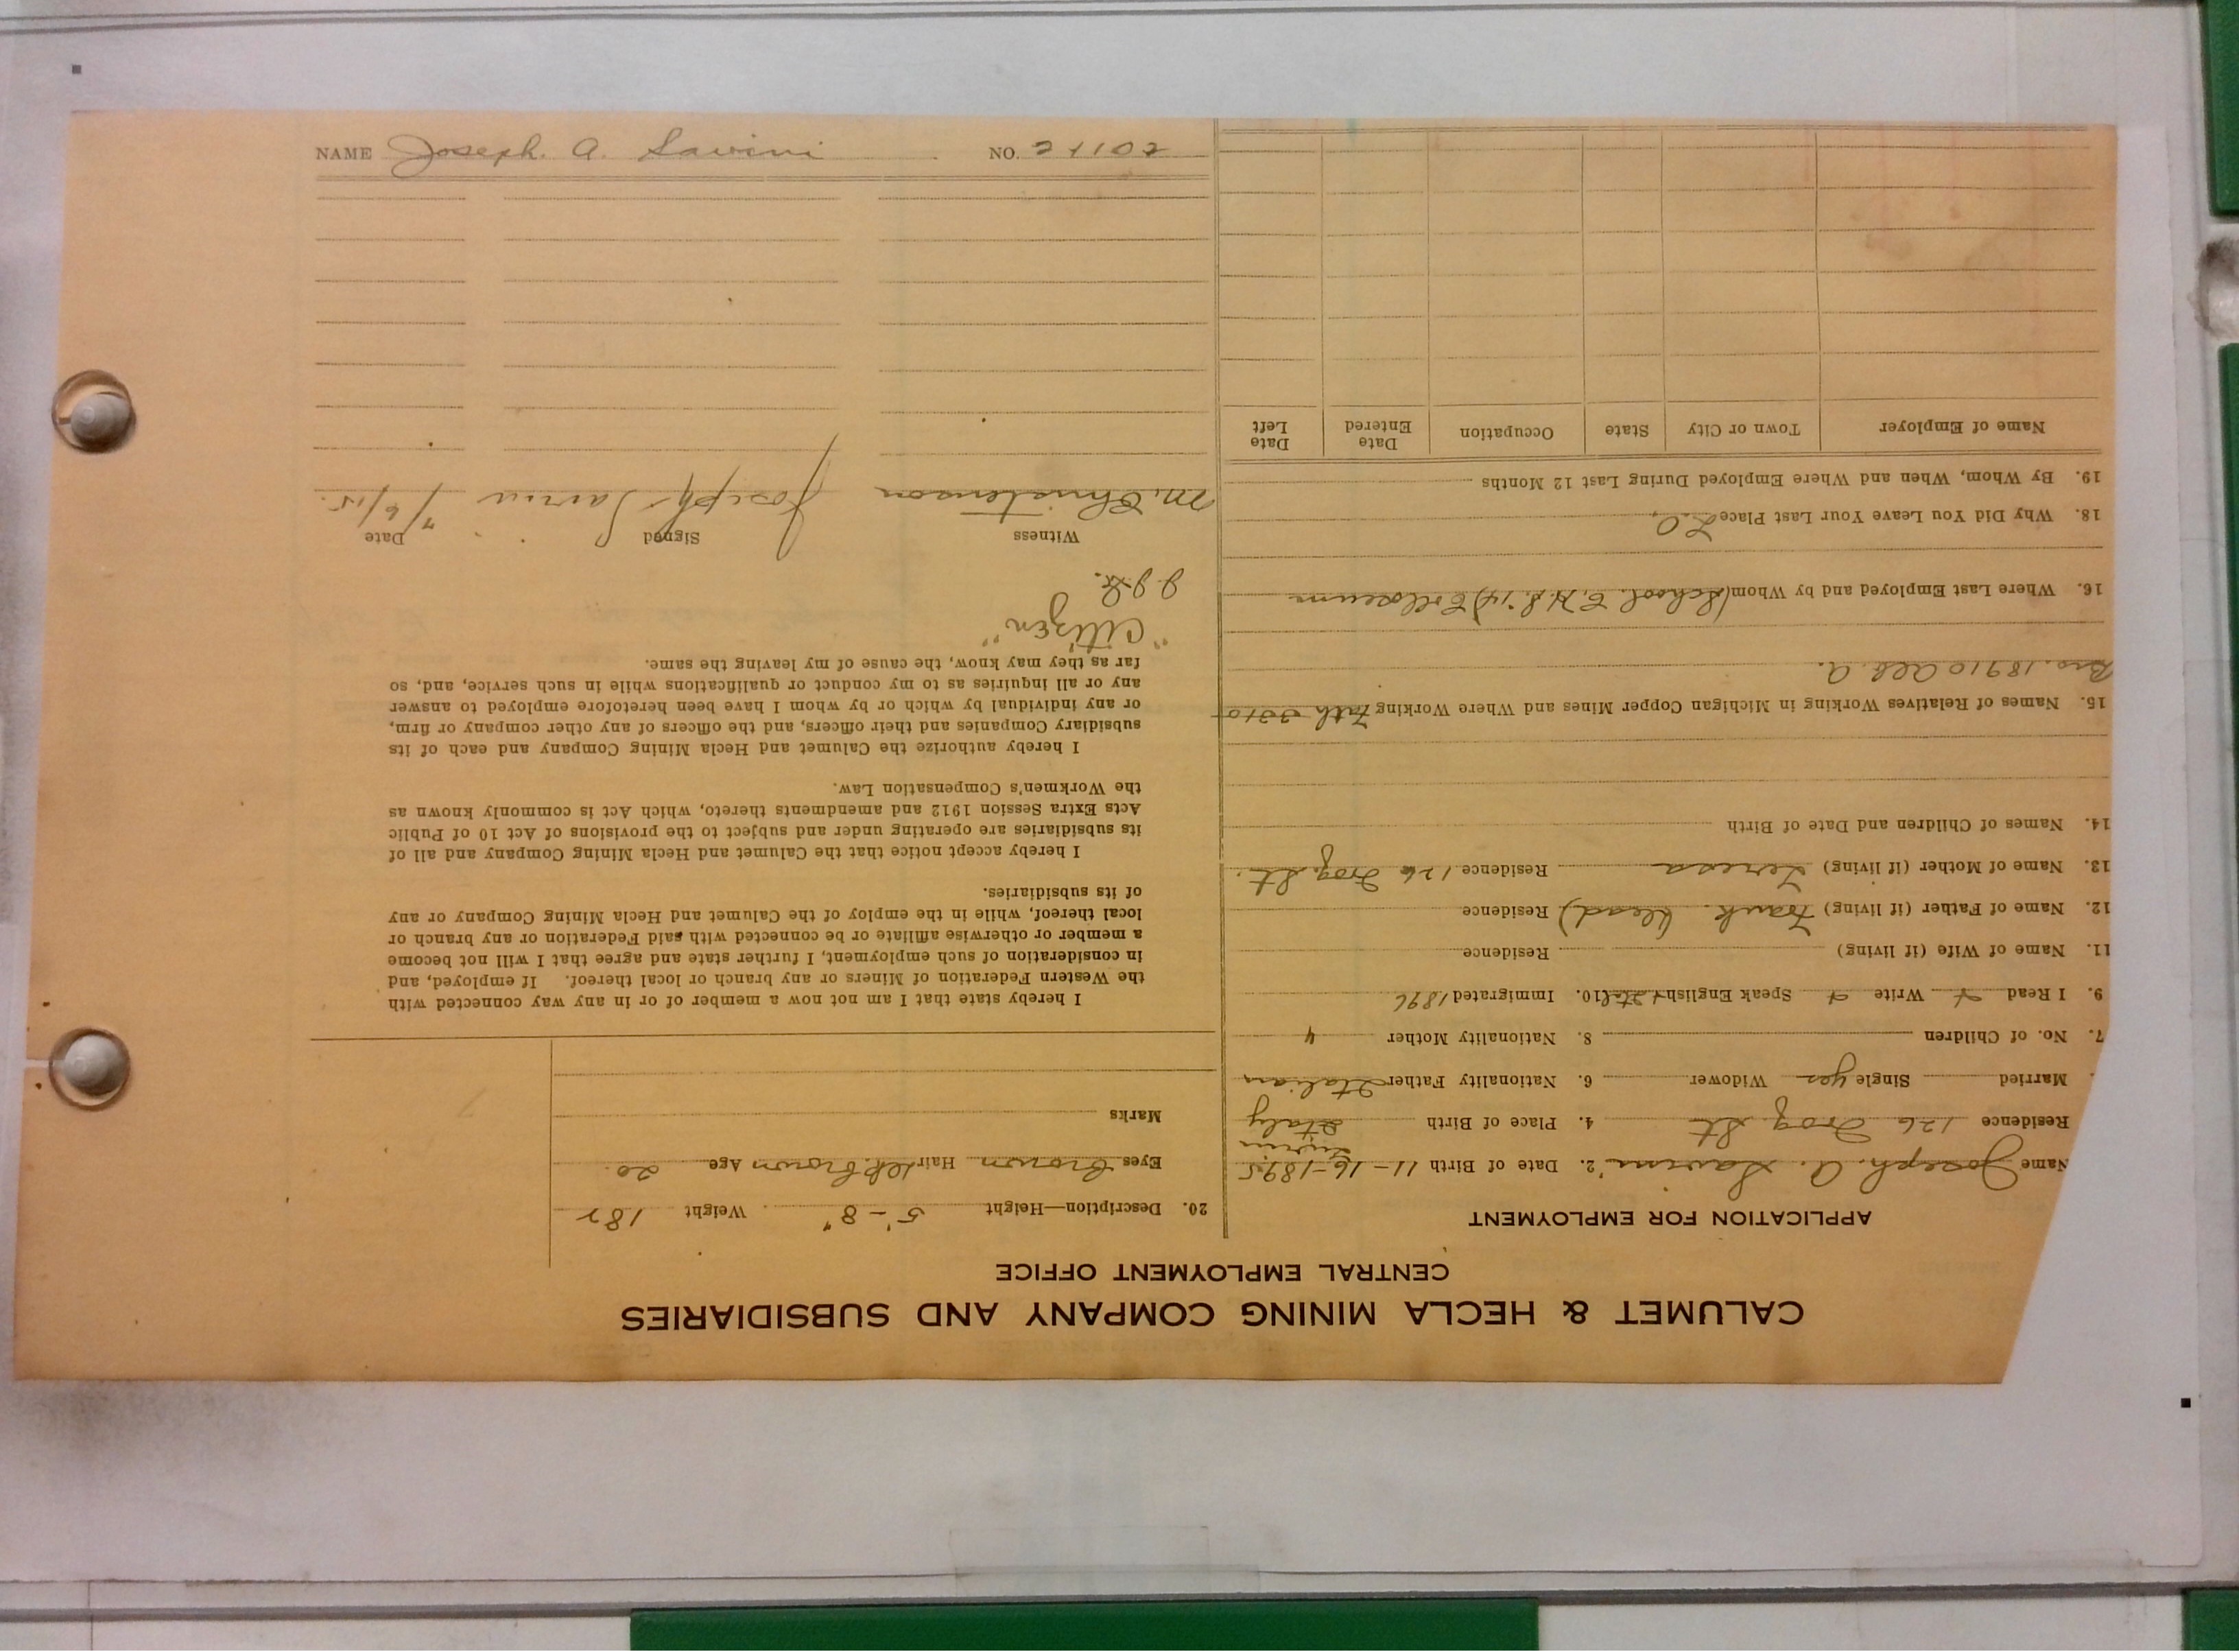 CALUMET & HECLA MINING COMPANY AND SUBSIDIARIES
CENTRAL EMPLOYMENT OFFICE
APPLICATION FOR EMPLOYMENT
Name Joseph. A. Savini 2. Date of Birth 11-16-1895
Residence 126 Frog St 4. Place of Birth Turin Italy
Married Single yes Widower 6. Nationality Father Italian
7. No. of Children 8. Nationality Mother "
9. I Read + Write + Speak English + Ital 10. Immigrated 1896
11. Name of Wife (if living) Residence
12. Name of Father (if living) Frank. (dead) Residence
13. Name of Mother (if living) Teresa Residence 126 Frog. St.
14. Names of Children and Date of Birth
15. Names of Relatives Working in Michigan Copper Mines and Where Working Fath 3310
Bro. 18910 Alb. A.
16. Where Last Employed and by Whom (School C.H.S. '14) Colloseum
18. Why Did You Leave Your Last Place L.O.
19. By Whom, When and Where Employed During Last 12 Months
Name of Employer Town or City State Occupation Date Entered Date Left
20. Description—Height 5'-8" Weight 182
Eyes Brown Hair Dk. Brown Age 20.
Marks
I hereby state that I am not now a member of or in any way connected with
the Western Federation of Miners or any branch or local thereof. If employed, and
in consideration of such employment, I further state and agree that I will not become
a member or otherwise affiliate or be connected with said Federation or any branch or
local thereof, while in the employ of the Calumet and Hecla Mining Company or any
of its subsidiaries.
I hereby accept notice that the Calumet and Hecla Mining Company and all of
its subsidiaries are operating under and subject to the provisions of Act 10 of Public
Acts Extra Session 1912 and amendments thereto, which Act is commonly known as
the Workmen's Compensation Law.
I hereby authorize the Calumet and Hecla Mining Company and each of its
subsidiary Companies and their officers, and the officers of any other company or firm,
or any individual by which or by whom I have been heretofore employed to answer
any or all inquiries as to my conduct or qualifications while in such service, and, so
far as they may know, the cause of my leaving the same.
"Citizen"
Witness Signed Date
M. Christenson Joseph Savini 7/6/15.
NAME Joseph. A. Savini NO. 21102